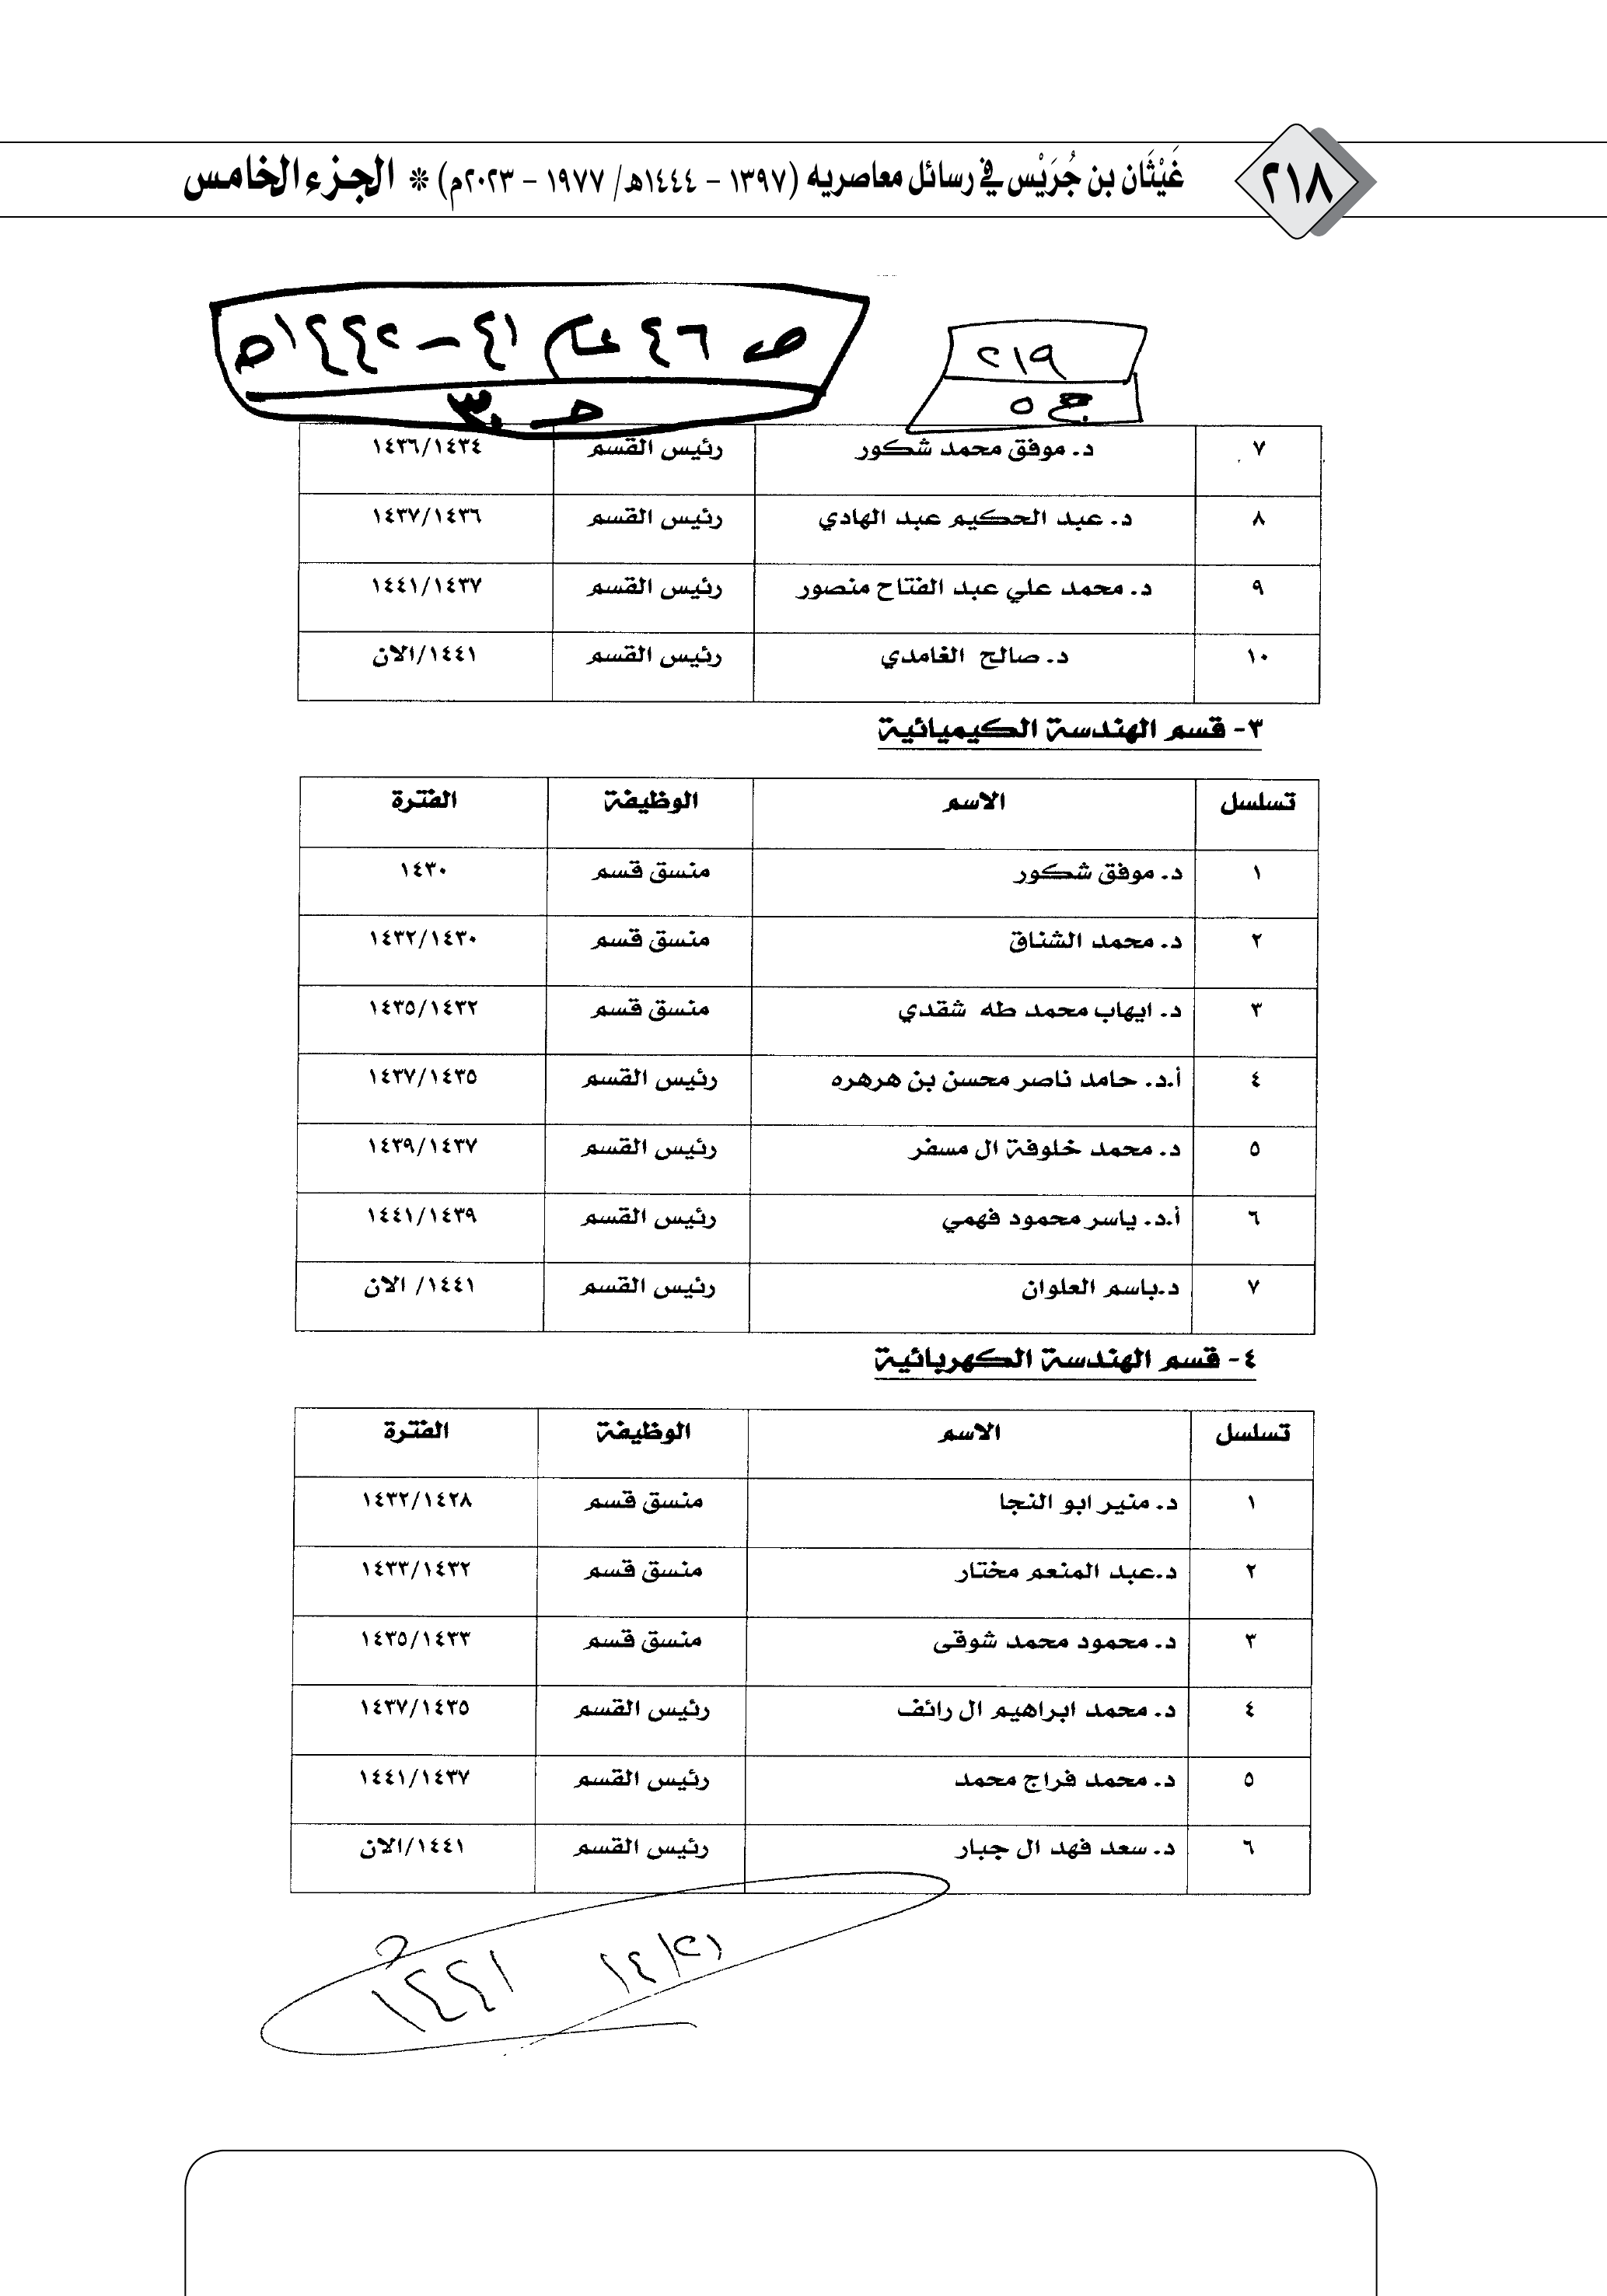 ٢١٨ غَيْثَان بن جُرَيْس في رسائل معاصريه (١٣٩٧ - ١٤٤٤هـ/ ١٩٧٧ - ٢٠٢٣م) * الجزء الخامس
ص ٤٦ عام ٤١ - ١٤٤٢هـ
٢١٩
ج ٥
٧ د. موفق محمد شكور رئيس القسم ١٤٣٦/١٤٣٤
٨ د. عبد الحكيم عبد الهادي رئيس القسم ١٤٣٧/١٤٣٦
٩ د. محمد علي عبد الفتاح منصور رئيس القسم ١٤٤١/١٤٣٧
١٠ د. صالح الغامدي رئيس القسم ١٤٤١/الان
٣- قسم الهندسة الكيميائية
تسلسل الاسم الوظيفة الفترة
١ د. موفق شكور منسق قسم ١٤٣٠
٢ د. محمد الشناق منسق قسم ١٤٣٢/١٤٣٠
٣ د. ايهاب محمد طه شقدي منسق قسم ١٤٣٥/١٤٣٢
٤ أ.د. حامد ناصر محسن بن هرهره رئيس القسم ١٤٣٧/١٤٣٥
٥ د. محمد خلوفة ال مسفر رئيس القسم ١٤٣٩/١٤٣٧
٦ أ.د. ياسر محمود فهمي رئيس القسم ١٤٤١/١٤٣٩
٧ د.باسم العلوان رئيس القسم ١٤٤١/ الان
٤- قسم الهندسة الكهربائية
تسلسل الاسم الوظيفة الفترة
١ د. منير ابو النجا منسق قسم ١٤٣٢/١٤٢٨
٢ د.عبد المنعم مختار منسق قسم ١٤٣٣/١٤٣٢
٣ د. محمود محمد شوقى منسق قسم ١٤٣٥/١٤٣٣
٤ د. محمد ابراهيم ال رائف رئيس القسم ١٤٣٧/١٤٣٥
٥ د. محمد فراج محمد رئيس القسم ١٤٤١/١٤٣٧
٦ د. سعد فهد ال جبار رئيس القسم ١٤٤١/الان
١٤٤١